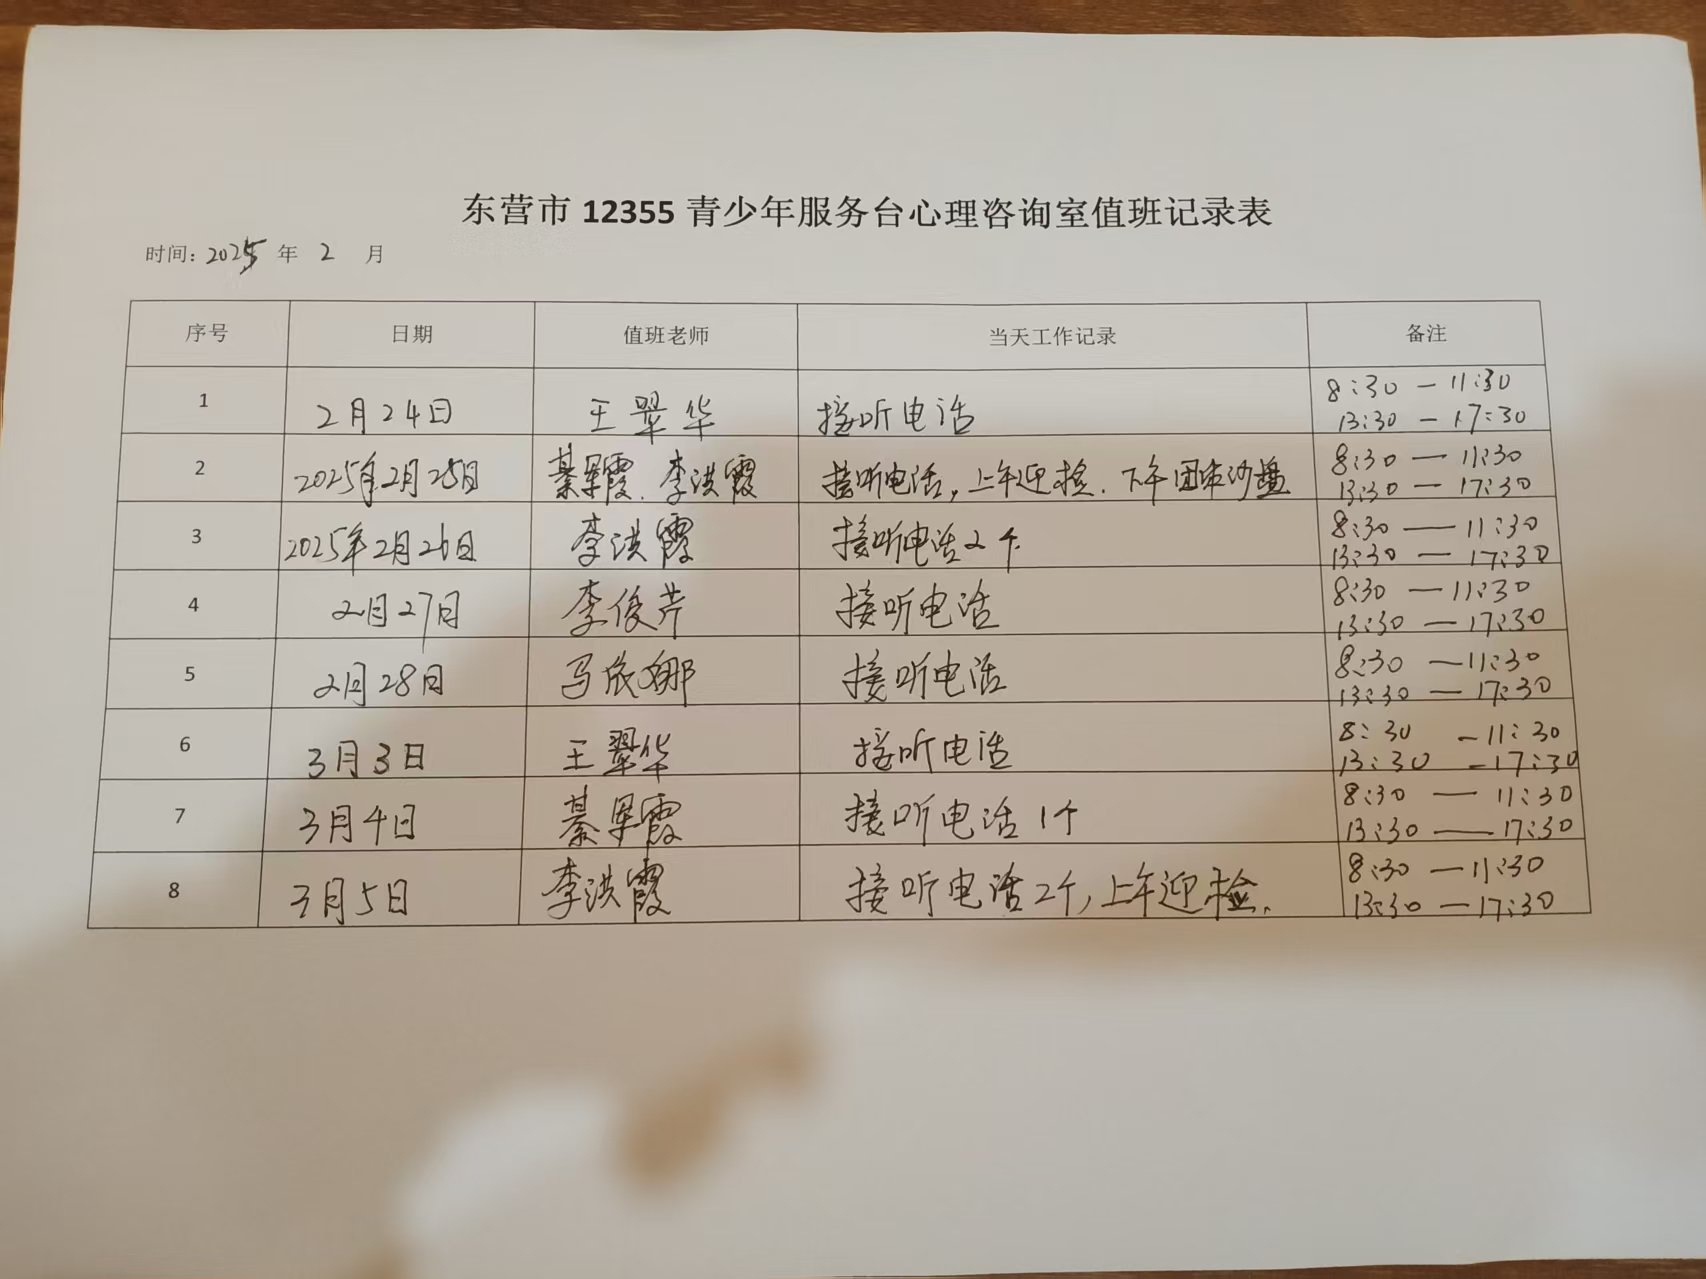 东营市 12355 青少年服务台心理咨询室值班记录表
时间：2025 年 2 月
序号 日期 值班老师 当天工作记录 备注
1 2月24日 王翠华 接听电话 8:30 — 11:30
13:30 — 17:30
2 2025年2月25日 綦翠霞、李洪霞 接听电话，上午迎检．下午团体沙盘 8:30 — 11:30
13:30 — 17:30
3 2025年2月26日 李洪霞 接听电话2个 8:30 — 11:30
13:30 — 17:30
4 2月27日 李俊芹 接听电话 8:30 — 11:30
13:30 — 17:30
5 2月28日 马依娜 接听电话 8:30 — 11:30
13:30 — 17:30
6 3月3日 王翠华 接听电话 8:30 — 11:30
13:30 — 17:30
7 3月4日 綦翠霞 接听电话 1个 8:30 — 11:30
13:30 — 17:30
8 3月5日 李洪霞 接听电话2个，上午迎检． 8:30 — 11:30
13:30 — 17:30